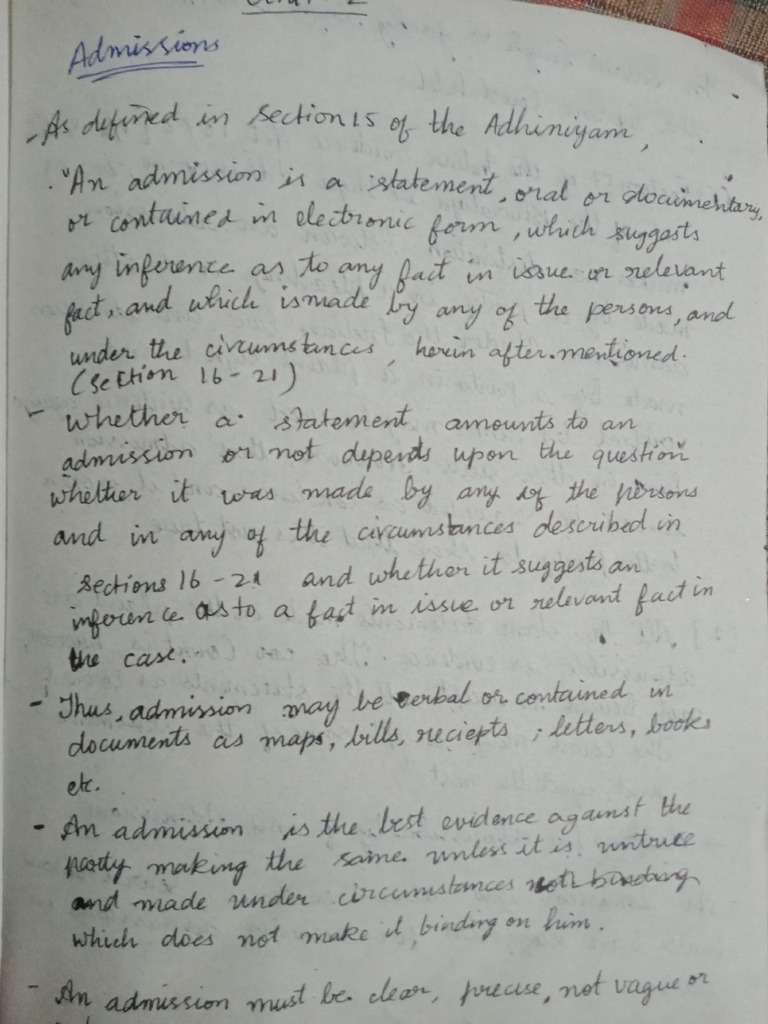 Admissions
- As defined in Section 15 of the Adhiniyam,
"An admission is a statement, oral or documentary,
or contained in electronic form, which suggests
any inference as to any fact in issue or relevant
fact, and which is made by any of the persons, and
under the circumstances, herein after mentioned.
(Section 16-21)
- Whether a statement amounts to an
admission or not depends upon the question
whether it was made by any of the persons
and in any of the circumstances described in
sections 16-21 and whether it suggests an
inference as to a fact in issue or relevant fact in
the case.
- Thus, admission may be verbal or contained in
documents as maps, bills, reciepts, letters, books
etc.
- An admission is the best evidence against the
party making the same unless it is untrue
and made under circumstances not binding
which does not make it binding on him.
- An admission must be clear, precise, not vague or